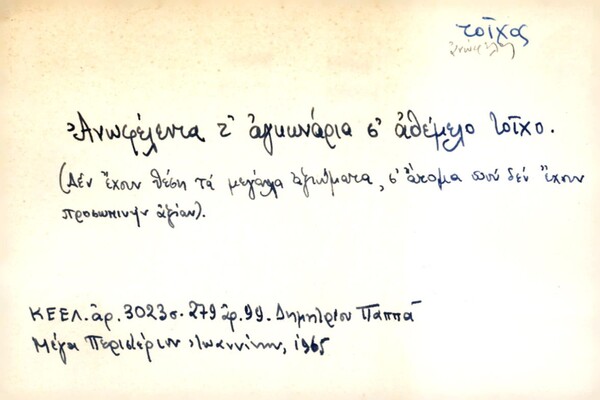 τοῖχος
ἀνώφελη
Ἀνωφέλεντα τ' ἀγκωνάρια σ' ἀθέμελο τοῖχο.
(Δέν ἔχουν θέση τά μεγάλα ἀξιώματα, σ' ἄτομα πού δέν ἔχουν
προσωπικήν ἀξίαν).
ΚΕΕΛ. ἀρ. 3023 σ. 279 ἀρ. 99. Δημητρίου Παππᾶ
Μέγα Περιστέριον Ἰωαννίνων, 1965